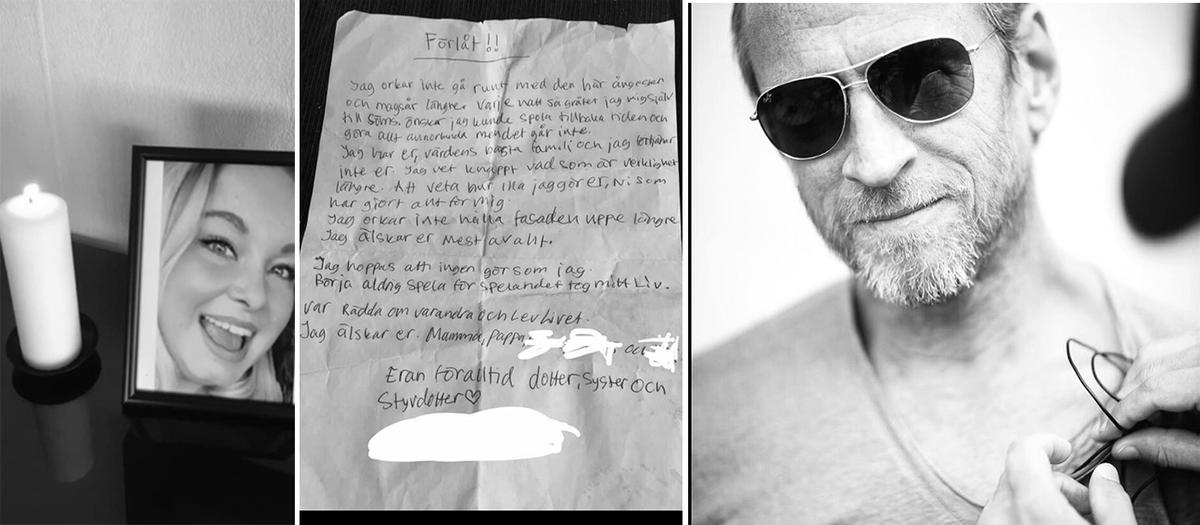 Förlåt!!
Jag orkar inte gå runt med den här ångesten
och magsår längre. Varje natt så gråter jag mig själv
till söms. önskar jag kunde spola tillbaka tiden och
göra allt annorlunda men det går inte.
Jag har er, världens bästa familj och jag förtjänar
inte er. Jag vet knappt vad som är verklighet
längre. Att veta hur illa jag gör er, Ni som
har gjort allt för mig.
Jag orkar inte hålla fasaden uppe längre
Jag älskar er mest av allt.
Jag hoppas att ingen gör som jag.
Börja aldrig spela för spelandet tog mitt Liv.
var Rädda om varandra och Lev Livet.
Jag älskar er. Mamma, Pappa, och
Eran föralltid dotter, syster och
Styvdotter♡